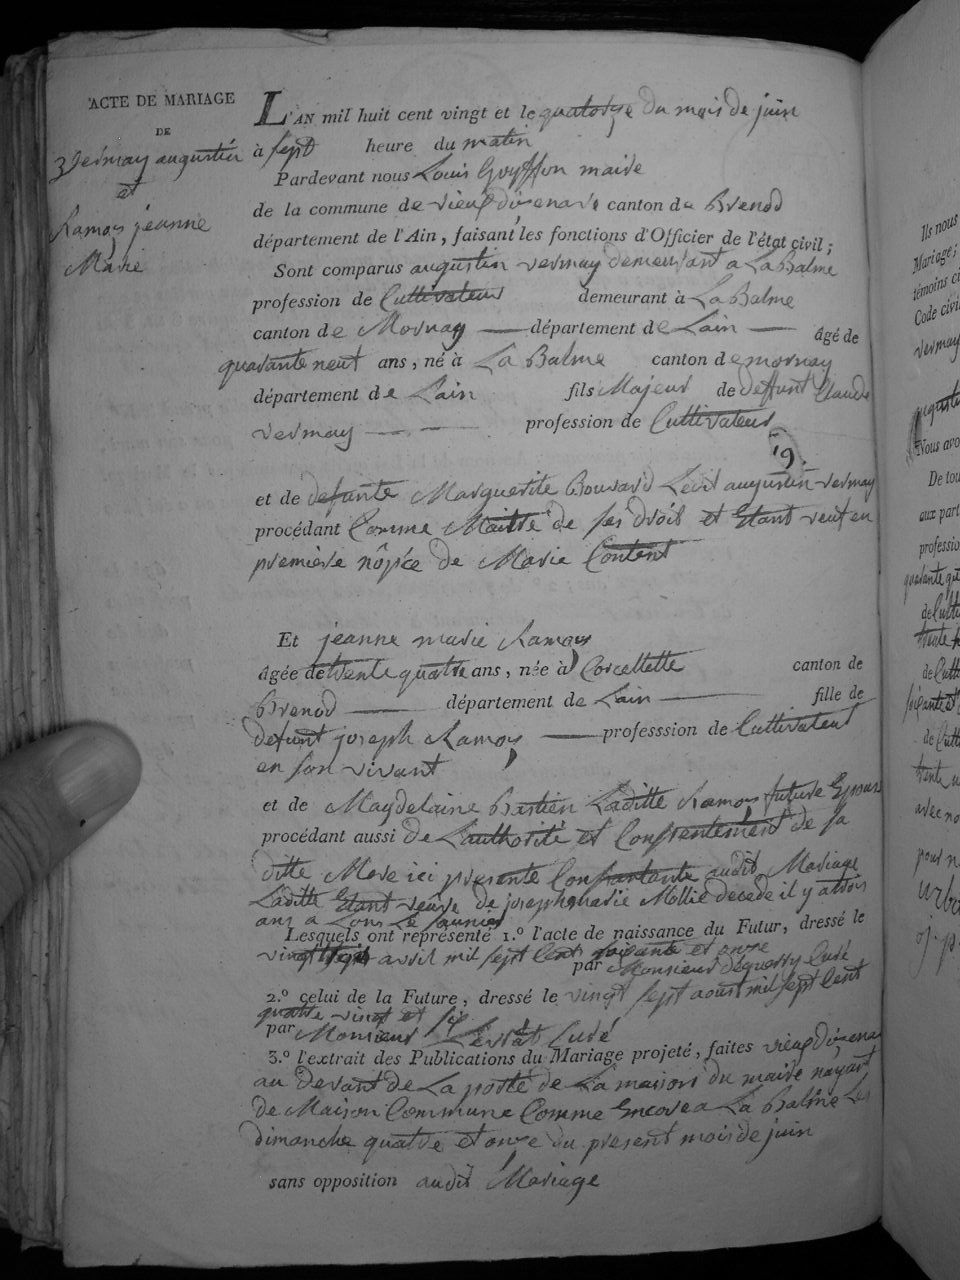 ACTE DE MARIAGE
DE
3 vernay augustin
et
Ramoy jeanne
Marie
L'AN mil huit cent vingt et le quatorze du mois de juin
à sept heure du matin
Pardevant nous Louis Goyffon maire
de la commune de vieux dizenave canton de Brenod
département de l'Ain, faisant les fonctions d'Officier de l'état civil;
Sont comparus augustin vernay demeurant a La Balme
profession de Cultivateur demeurant à La Balme
canton de Mornay département de Lain âgé de
quarante neuf ans, né à La Balme canton de mornay
département de Lain fils Majeur de deffunt Claude
vernay profession de Cultivateur
19.
et de defunte Marguerite Bouvard Ledit augustin vernay
procédant Comme Maitre de ses droit et Etant veuf en
première nôpce de Marie Content
Et jeanne marie Ramoy
âgée de trente quatre ans, née à Corcellette canton de
Brenod département de Lain fille de
defunt joseph Ramoy professsion de Cultivateur
en son vivant
et de Magdelaine Bastien Laditte Ramoy future Epouse
procédant aussi de Lauthorité et Consentement de sa
ditte Mere ici presente Consantante audit Mariage
Laditte Etant veuve de joseph marie Mollie decede il y a trois
ans a Lons Le saunier
Lesquels ont représenté 1.º l'acte de naissance du Futur, dressé le
vingt sept avril mil sept Cent soixante et onze
par Monsieur Curé
2.º celui de la Future, dressé le vingt sept aoust mil sept Cent
quatre vingt et six
par Monsieur Levrat Curé
3.º l'extrait des Publications du Mariage projeté, faites vieux dizenave
au devant de La porte de La maison du maire nayant
de Maison Commune Comme Encore a La Balme Les
dimanche quatre et onze du present mois de juin
sans opposition audit Mariage
Ils nous
Mariage;
témoins
Code civil
vernay
Nous avo
De tou
aux part
professio
de Cult
de Cult
de Cult
avec no
pour n